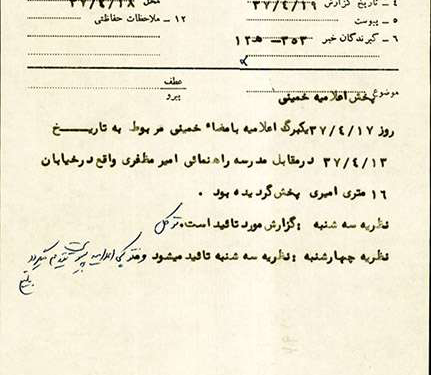 ۴ - تاریخ گزارش ۳۷/۴/۱۹
محل ۳۷/۴/۱۸
۵ - پیوست
۱۲ - ملاحظات حفاظتی
۶ - گیرندگان خبر ۳۵۳-
عطف
پیرو
موضوع پخش اعلامیه خمینی
روز ۳۷/۴/۱۷ یکبرگ اعلامیه بامضاء خمینی مربوط به تاریخ
۳۷/۴/۱۳ درمقابل مدرسه راهنمائی امیر مظفری واقع درخیابان
۱۶ متری امیری پخش گردیده بود .
نظریه سه شنبه : گزارش مورد تائید است . توکل
نظریه چهارشنبه : نظریه سه شنبه تائید میشود